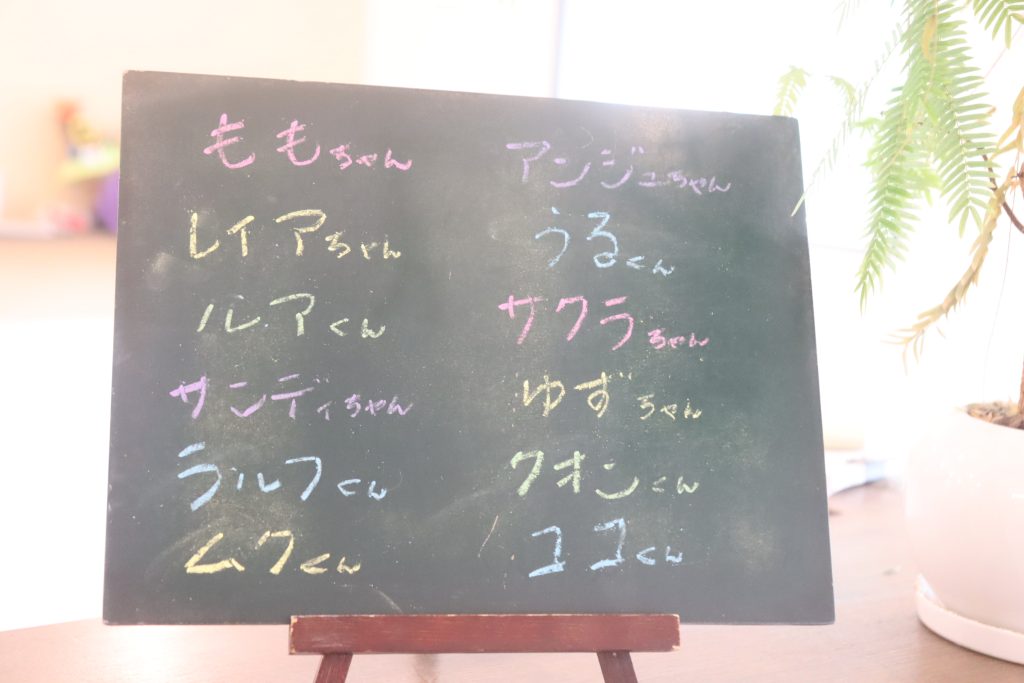 ももちゃん
レイアちゃん
ルアくん
サンディちゃん
ラルフくん
ムクくん
アンジュちゃん
うるくん
サクラちゃん
ゆずちゃん
クオンくん
ココくん